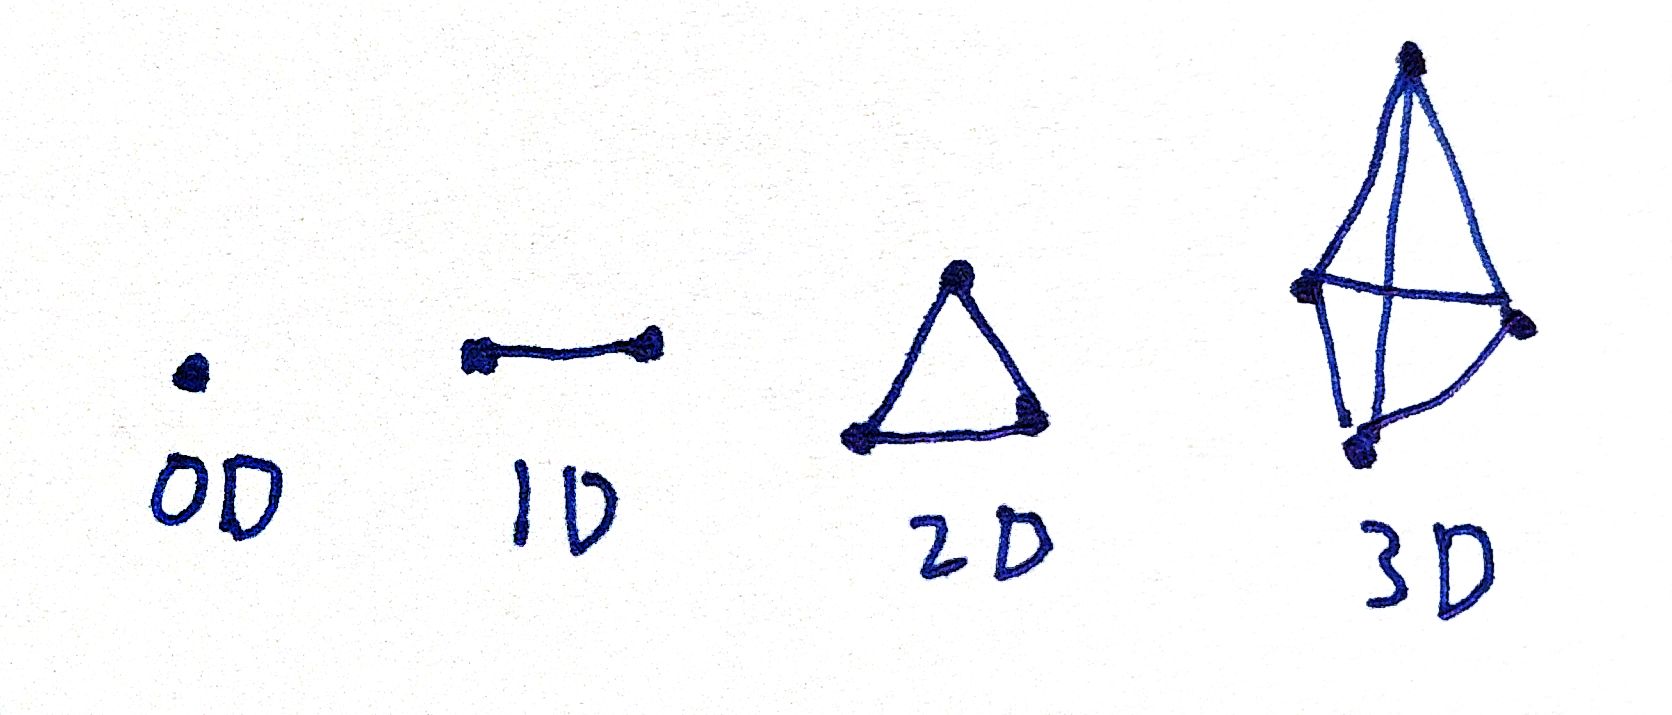 0D
1D
2D
3D